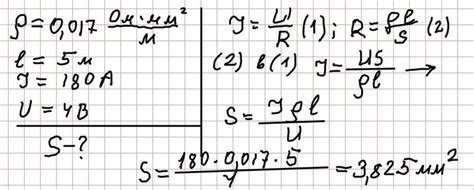 ρ = 0,017 Ом·мм²/м
l = 5 м
I = 180 А
U = 4 В
S - ?
I = U/R (1); R = ρl/S (2)
(2) в (1) I = US/ρl →
S = Iρl/U
S = 180·0,017·5/4 = 3,825 мм²